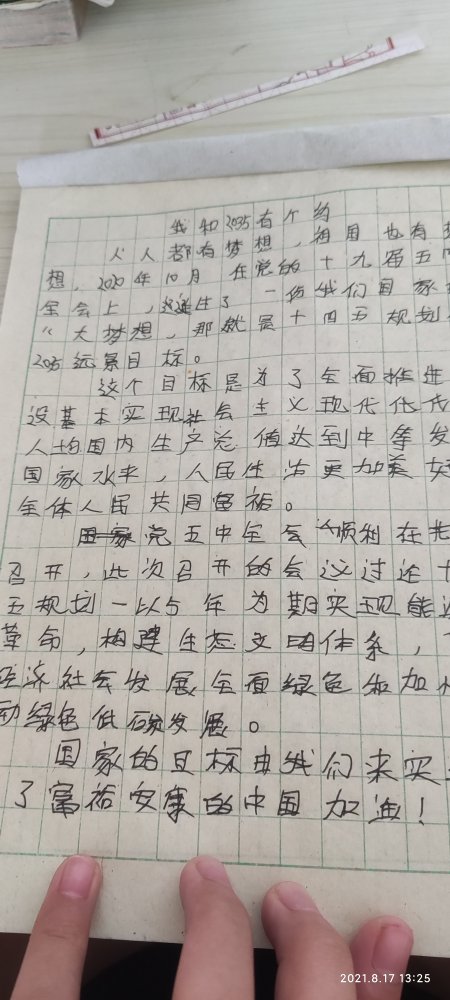 我和2035有个约
人人都有梦想，祖国也有梦
想，2020年10月在党的十九届五中
全会上，诞生了一份我们国家
“大梦想，那就是十四五规划
2035远景目标。
这个目标是为了全面推进
设基本实现社会主义现代代
人均国内生产总值达到中等发
国家水平，人民生活更加美好
全体人民共同富裕。
党五中全会顺利在
召开，此次召开的会议过还十
五规划一以5年为期实现能
革命，构建生态文明体系，
经济社会发展全面绿色和加
动绿色低碳发展。
国家的目标由我们来实
了富裕安康的中国加油！
2021.8.17 13:25